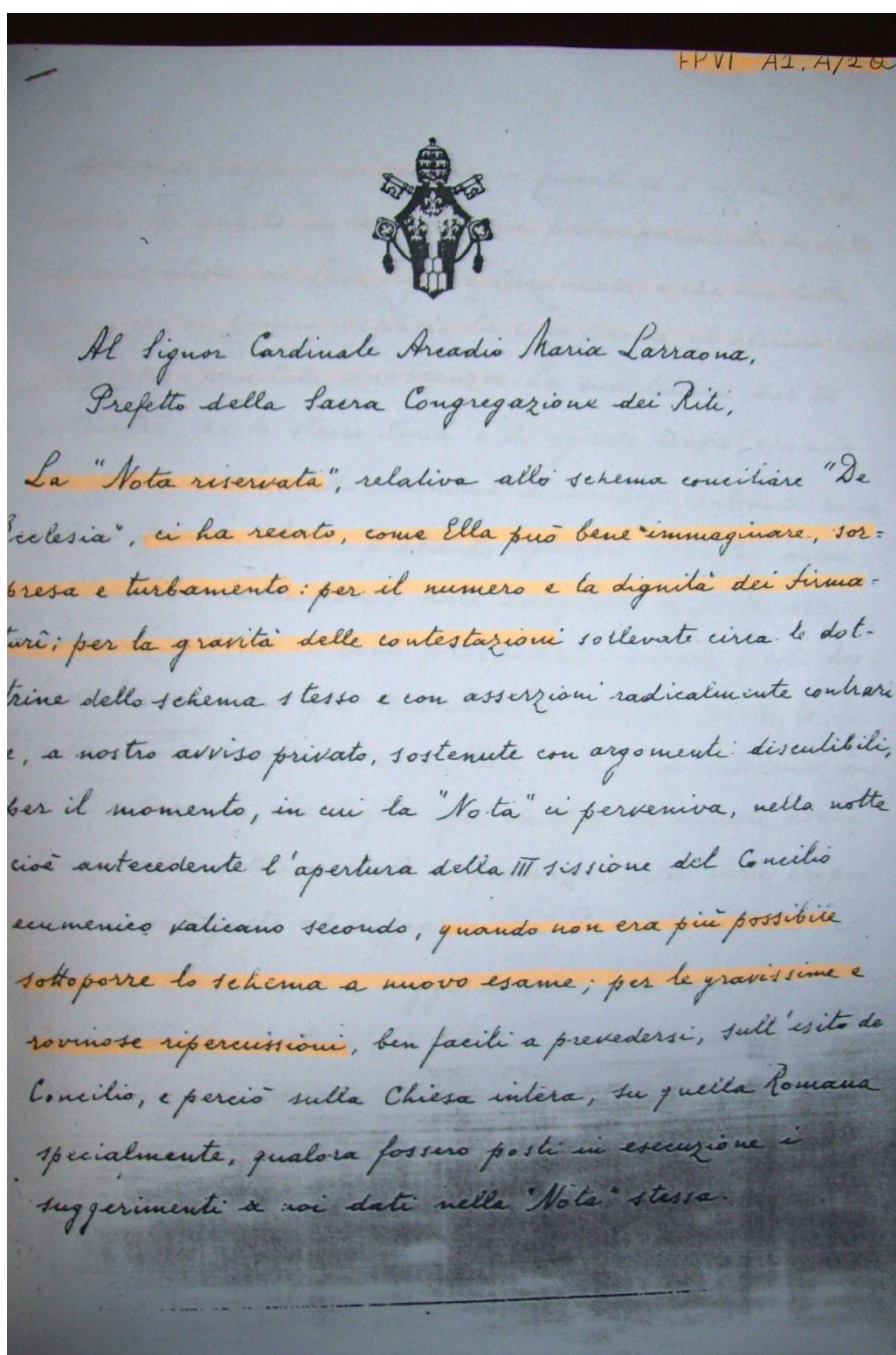 FPVI A1.A/10
Al Signor Cardinale Arcadio Maria Larraona,
Prefetto della Sacra Congregazione dei Riti,
La "Nota riservata", relativa allo schema conciliare "De
Ecclesia", ci ha recato, come Ella può bene immaginare, sor=
presa e turbamento: per il numero e la dignità dei firma=
tari; per la gravità delle contestazioni sollevate circa le dot-
trine dello schema stesso e con asserzioni radicalmente contrari
e, a nostro avviso privato, sostenute con argomenti discutibili,
per il momento, in cui la "Nota" ci perveniva, nella notte
cioè antecedente l'apertura della III sessione del Concilio
ecumenico vaticano secondo, quando non era più possibile
sottoporre lo schema a nuovo esame; per le gravissime e
rovinose ripercussioni, ben facili a prevedersi, sull'esito de
Concilio, e perciò sulla Chiesa intera, su quella Romana
specialmente, qualora fossero posti in esecuzione i
suggerimenti a noi dati nella "Nota" stessa.